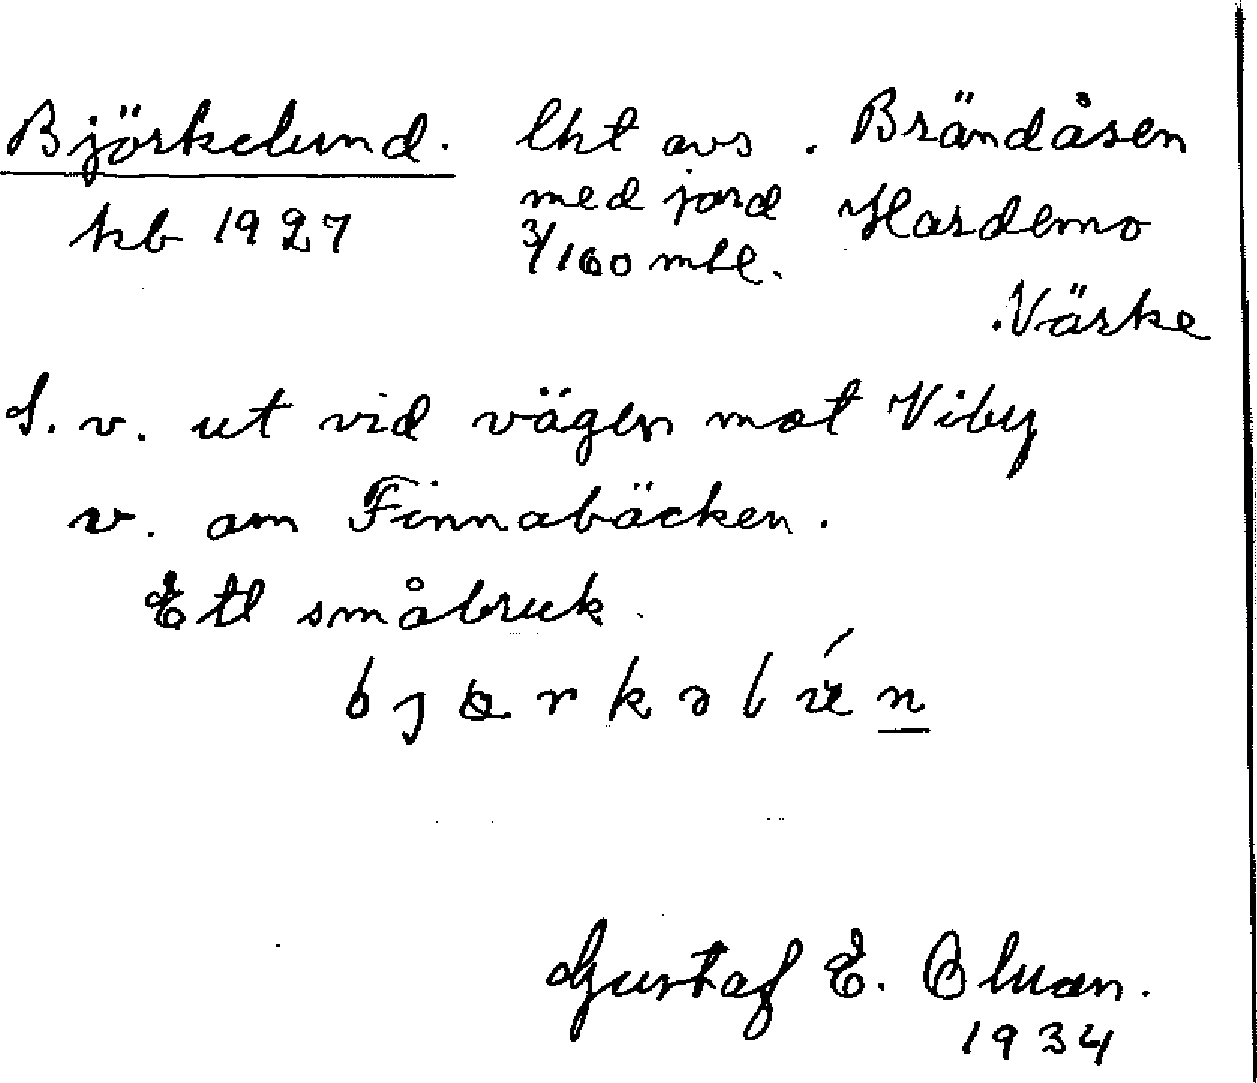 Björkelund. lht avs. Brändåsen
kb 1927 med jord Hardemo
3/160 mtl.
Närke
S. v. ut vid vägen mot Viby
v. om Finnabäcken.
Ett småbruk.
Gustaf E. Bluan.
1934